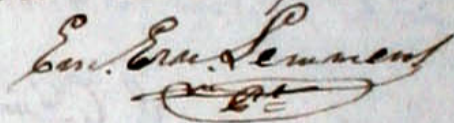 Em. Ern. Lemmens